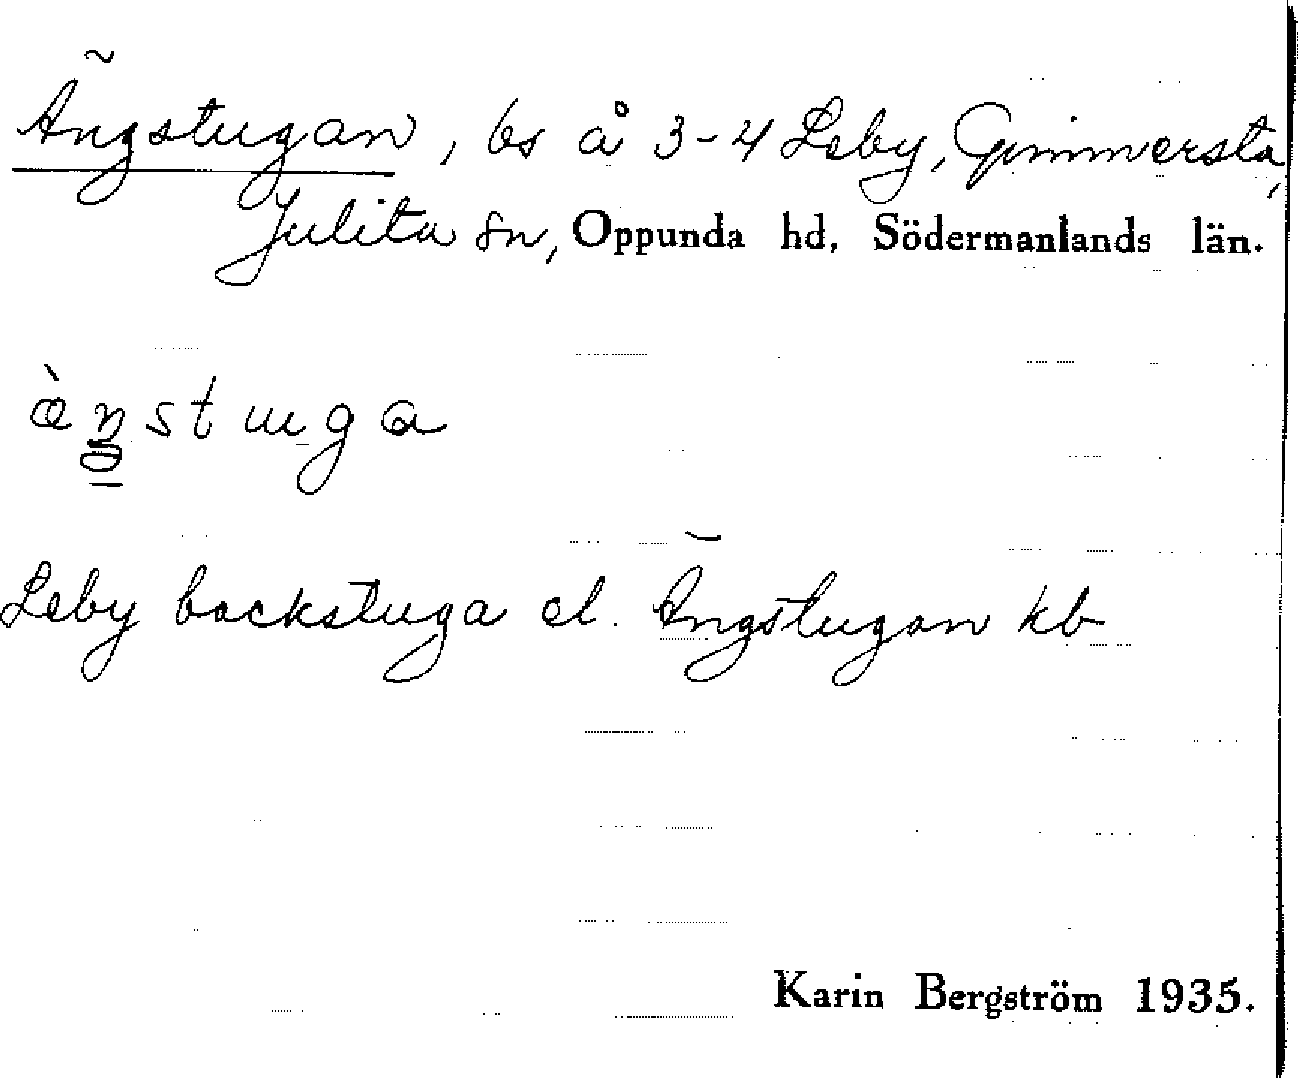 Ängstugan, bs å 3-4 Leby, Gimmersta,
Julita sn, Oppunda hd, Södermanlands län.
ängstuga
Leby backstuga el. Ängstugan kb
Karin Bergström 1935.